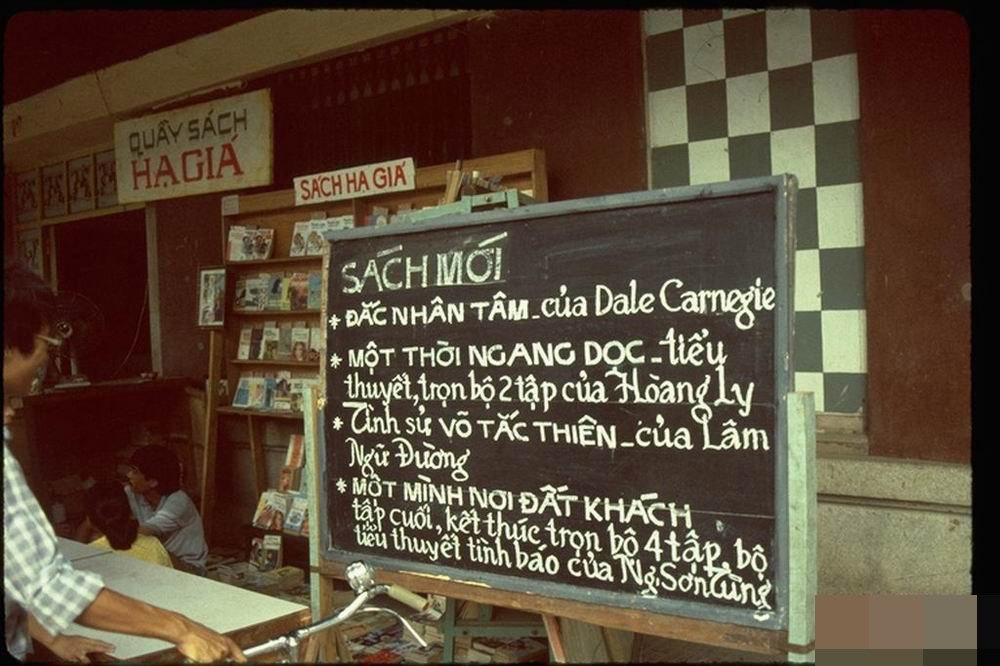 QUẦY SÁCH
HẠ GIÁ
SÁCH HẠ GIÁ
SÁCH MỚI
* ĐẮC NHÂN TÂM - của Dale Carnegie
* MỘT THỜI NGANG DỌC - tiểu
thuyết, trọn bộ 2 tập của Hoàng Ly
* Tình sử VÕ TẮC THIÊN - của Lâm
Ngữ Đường
* MỘT MÌNH NƠI ĐẤT KHÁCH
tập cuối, kết thúc trọn bộ 4 tập, bộ
tiểu thuyết tình báo của Ng. Sơn Tùng